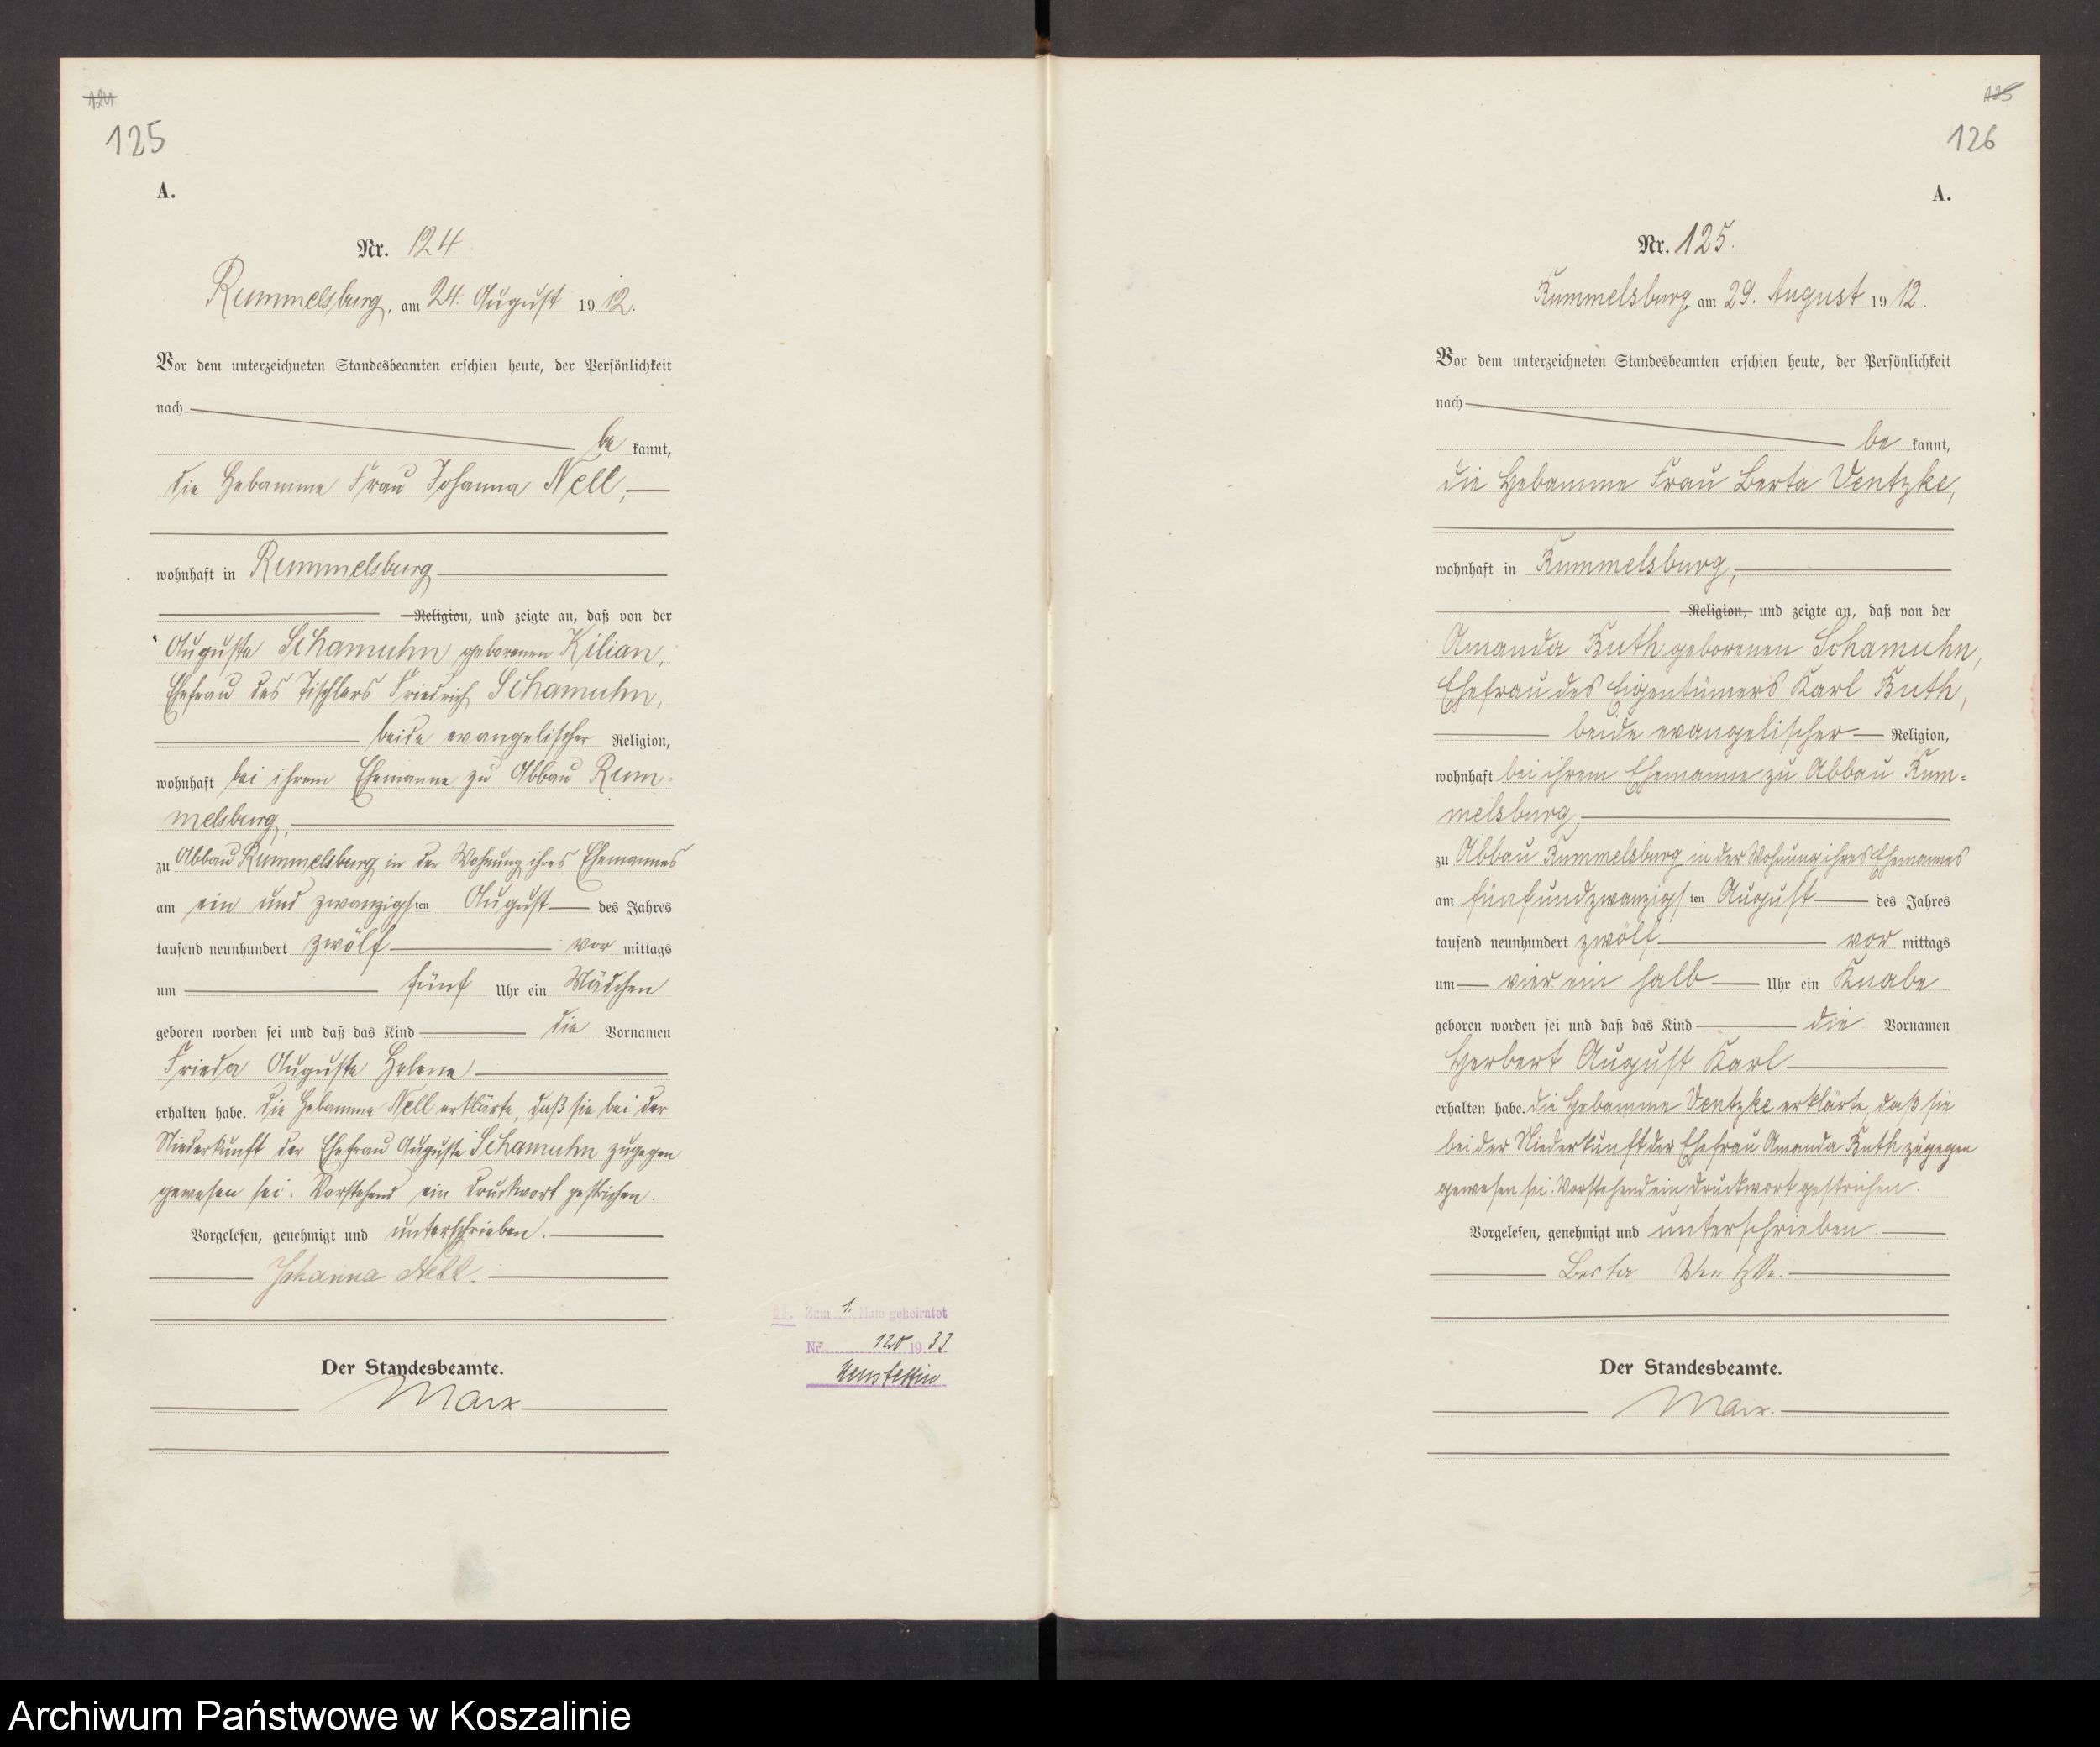 124
125
A.
Nr. 124
Rummelsburg, am 24. August 1912.
Vor dem unterzeichneten Standesbeamten erschien heute, der Persönlichkeit
nach
be kannt,
die Hebamme Frau Johanna Nell,
wohnhaft in Rummelsburg
Religion, und zeigte an, daß von der
Auguste Schamuhn geborenen Kilian,
Ehefrau des Tischlers Friedrich Schamuhn,
beide evangelischer Religion,
wohnhaft bei ihrem Ehemanne zu Abbau Rum-
melsburg,
zu Abbau Rummelsburg in der Wohnung ihres Ehemannes
am ein und zwanzigsten August des Jahres
tausend neunhundert zwölf vor mittags
um fünf Uhr ein Mädchen
geboren worden sei und daß das Kind die Vornamen
Frieda Auguste Helene
erhalten habe. Die Hebamme Nell erklärte, daß sie bei der
Niederkunft der Ehefrau Auguste Schamuhn zugegen
gewesen sei. Vorstehend ein Druckwort gestrichen.
Vorgelesen, genehmigt und unterschrieben.
Johanna Nell.
Der Standesbeamte.
Marx
Zum 1. Male geheiratet
Nr. 120 1933
Neustettin
125
126
A.
Nr. 125.
Rummelsburg, am 29. August 1912.
Vor dem unterzeichneten Standesbeamten erschien heute, der Persönlichkeit
nach
be kannt,
die Hebamme Frau Berta Ventzke,
wohnhaft in Rummelsburg,
Religion, und zeigte an, daß von der
Amanda Ruth geborenen Schamuhn,
Ehefrau des Eigentümers Karl Ruth,
beide evangelischer Religion,
wohnhaft bei ihrem Ehemanne zu Abbau Rum-
melsburg,
zu Abbau Rummelsburg in der Wohnung ihres Ehemannes
am fünfundzwanzigsten August des Jahres
tausend neunhundert zwölf vor mittags
um vier ein halb Uhr ein Knabe
geboren worden sei und daß das Kind die Vornamen
Herbert August Karl
erhalten habe. Die Hebamme Ventzke erklärte, daß sie
bei der Niederkunft der Ehefrau Amanda Ruth zugegen
gewesen sei. Vorstehend ein Druckwort gestrichen.
Vorgelesen, genehmigt und unterschrieben.
Berta Ventzke.
Der Standesbeamte.
Marx.
Archiwum Państwowe w Koszalinie